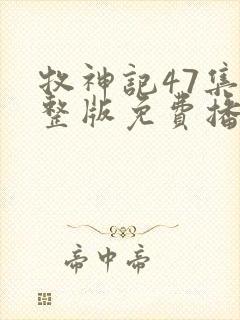 牧神記47集
整版免費播
帝中帝